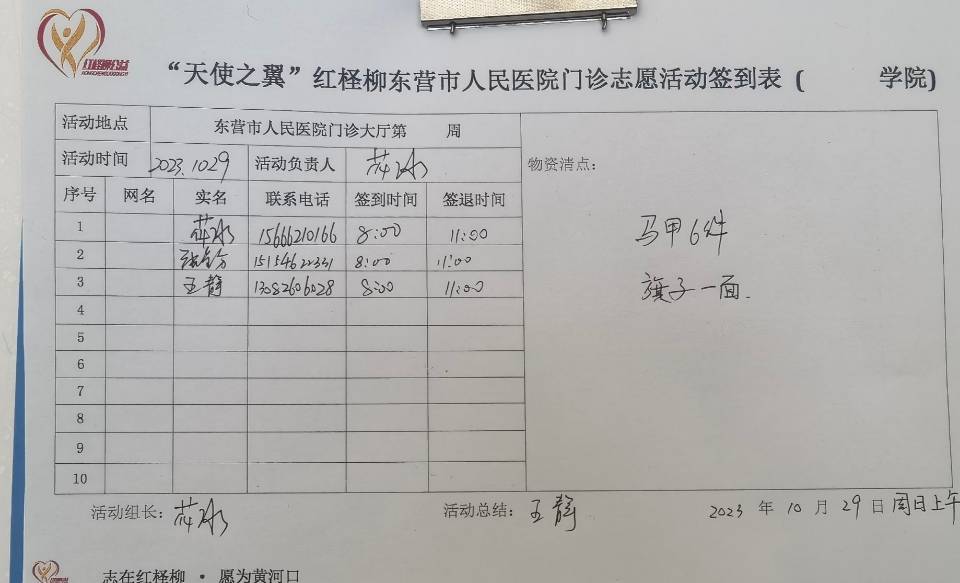 红柽柳公益
“天使之翼”红柽柳东营市人民医院门诊志愿活动签到表 ( 学院)
活动地点 东营市人民医院门诊大厅第 周
活动时间 2023.10.29 活动负责人
物资清点：
序号 网名 实名 联系电话 签到时间 签退时间
1 15666210166 8:00 11:00
马甲6件
2 15154622331 8:00 11:00
3 王静 13082606028 8:00 11:00
旗子一面.
4
5
6
7
8
9
10
活动组长： 活动总结：王静 2023 年 10 月 29 日 周日上午
志在红柽柳 · 愿为黄河口